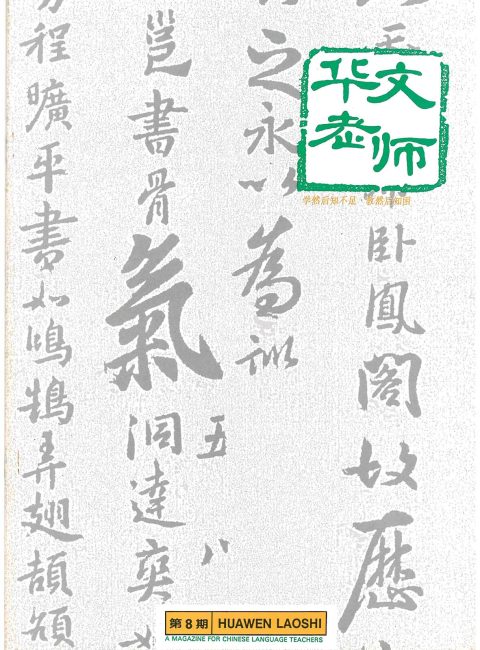 华文
老师
学然后知不足·教然后知困
臥鳳閣故歷
之永以為訓
五八
邕書骨氣洞達爽
程曠平書如鴻鵠弄翅頡頏
第8期 HUAWEN LAOSHI
A MAGAZINE FOR CHINESE LANGUAGE TEACHERS